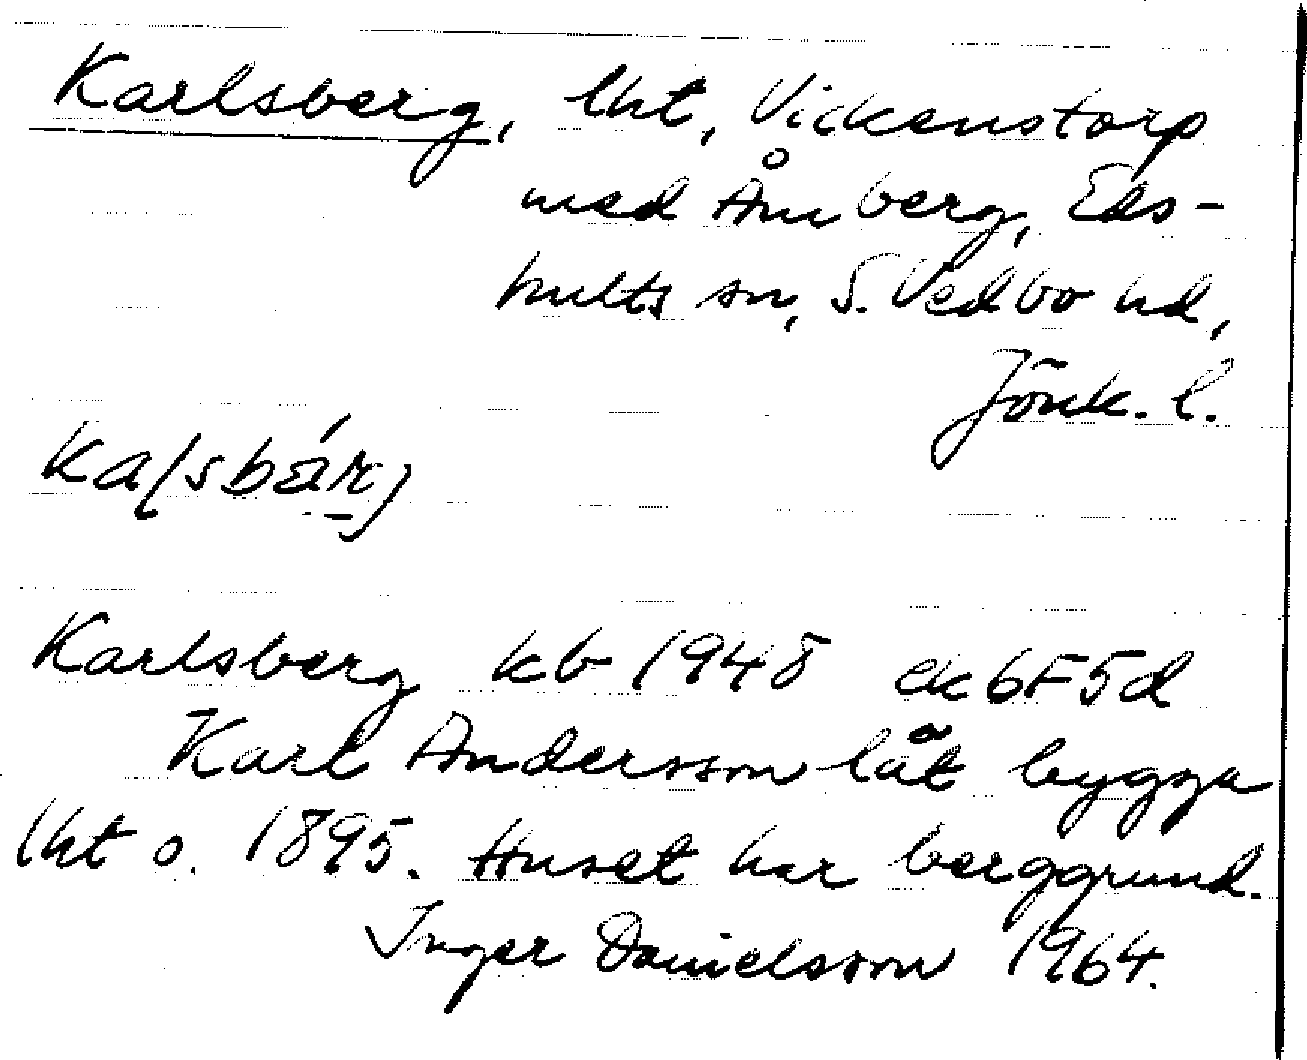 Karlsberg, lht, Vickenstorp
med Åmberg, Eds-
hults sn, S. Vedbo hd,
Jönk. l.
Karlsberg kb 1948 ek 6F5d
Karl Andersson lät bygga
lht o. 1895. Huset har berggrund.
Inger Danielsson 1964.